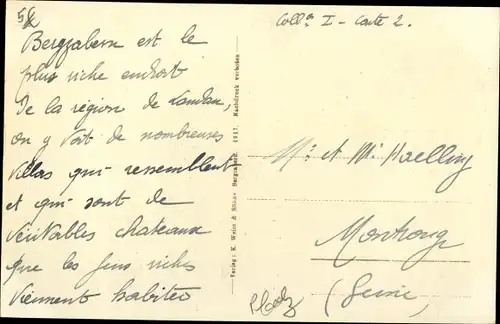 Collon I - Carte 2.
Bergzabern est le
plus riche endroit
de la région de Landau,
on y voit de nombreuses
villas qui ressemblent
et qui sont de
véritables chateaux
que les gens riches
viennent habiter
Verlag: K. Weiss & Söhne Bergzabern. 1917. Nachdruck verboten
Mr. et Me
Montrouge
(Seine)